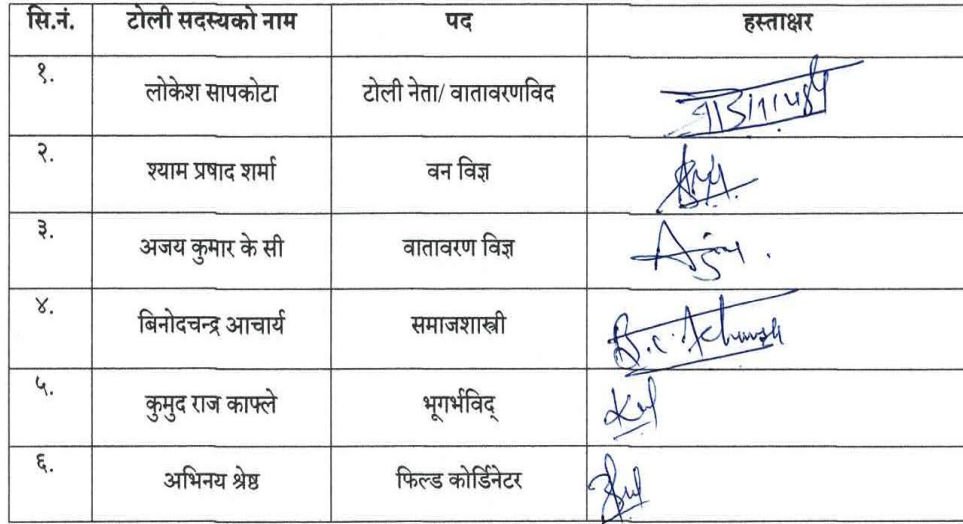 सि.नं. टोली सदस्यको नाम पद हस्ताक्षर
१. लोकेश सापकोटा टोली नेता/ वातावरणविद
२. श्याम प्रषाद शर्मा वन विज्ञ
३. अजय कुमार के सी वातावरण विज्ञ
४. बिनोदचन्द्र आचार्य समाजशास्त्री
५. कुमुद राज काफ्ले भूगर्भविद्
६. अभिनय श्रेष्ठ फिल्ड कोर्डिनेटर